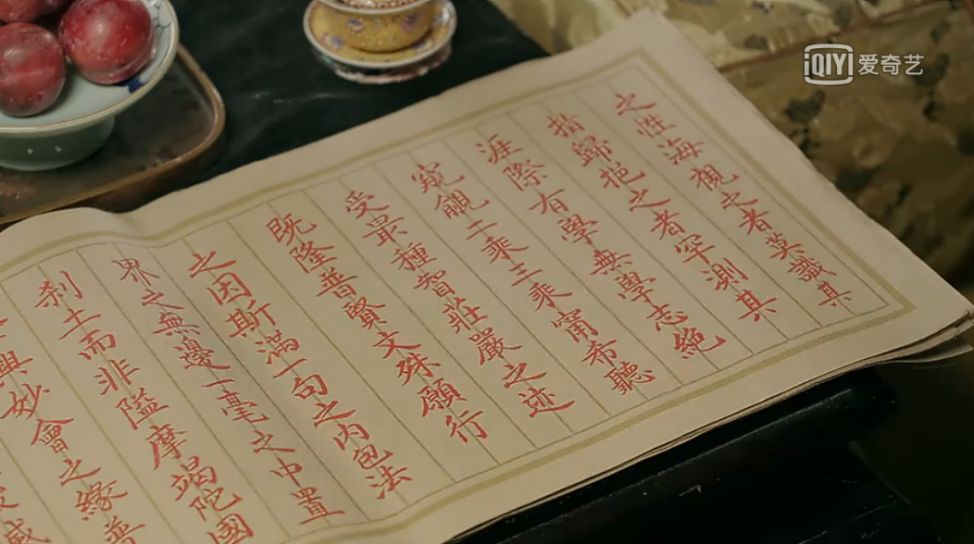 iQIYI 爱奇艺
之性海視之者莫識其
指歸挹之者罕測其
涯際有學無學志絕
窺覦二乘三乘甯希聽
受最種智莊嚴之迹
既隆普賢文殊願行
之因斯滿一句之內包法
界之無邊一毫之中置
刹土而非隘摩竭陀國
興妙會之緣普